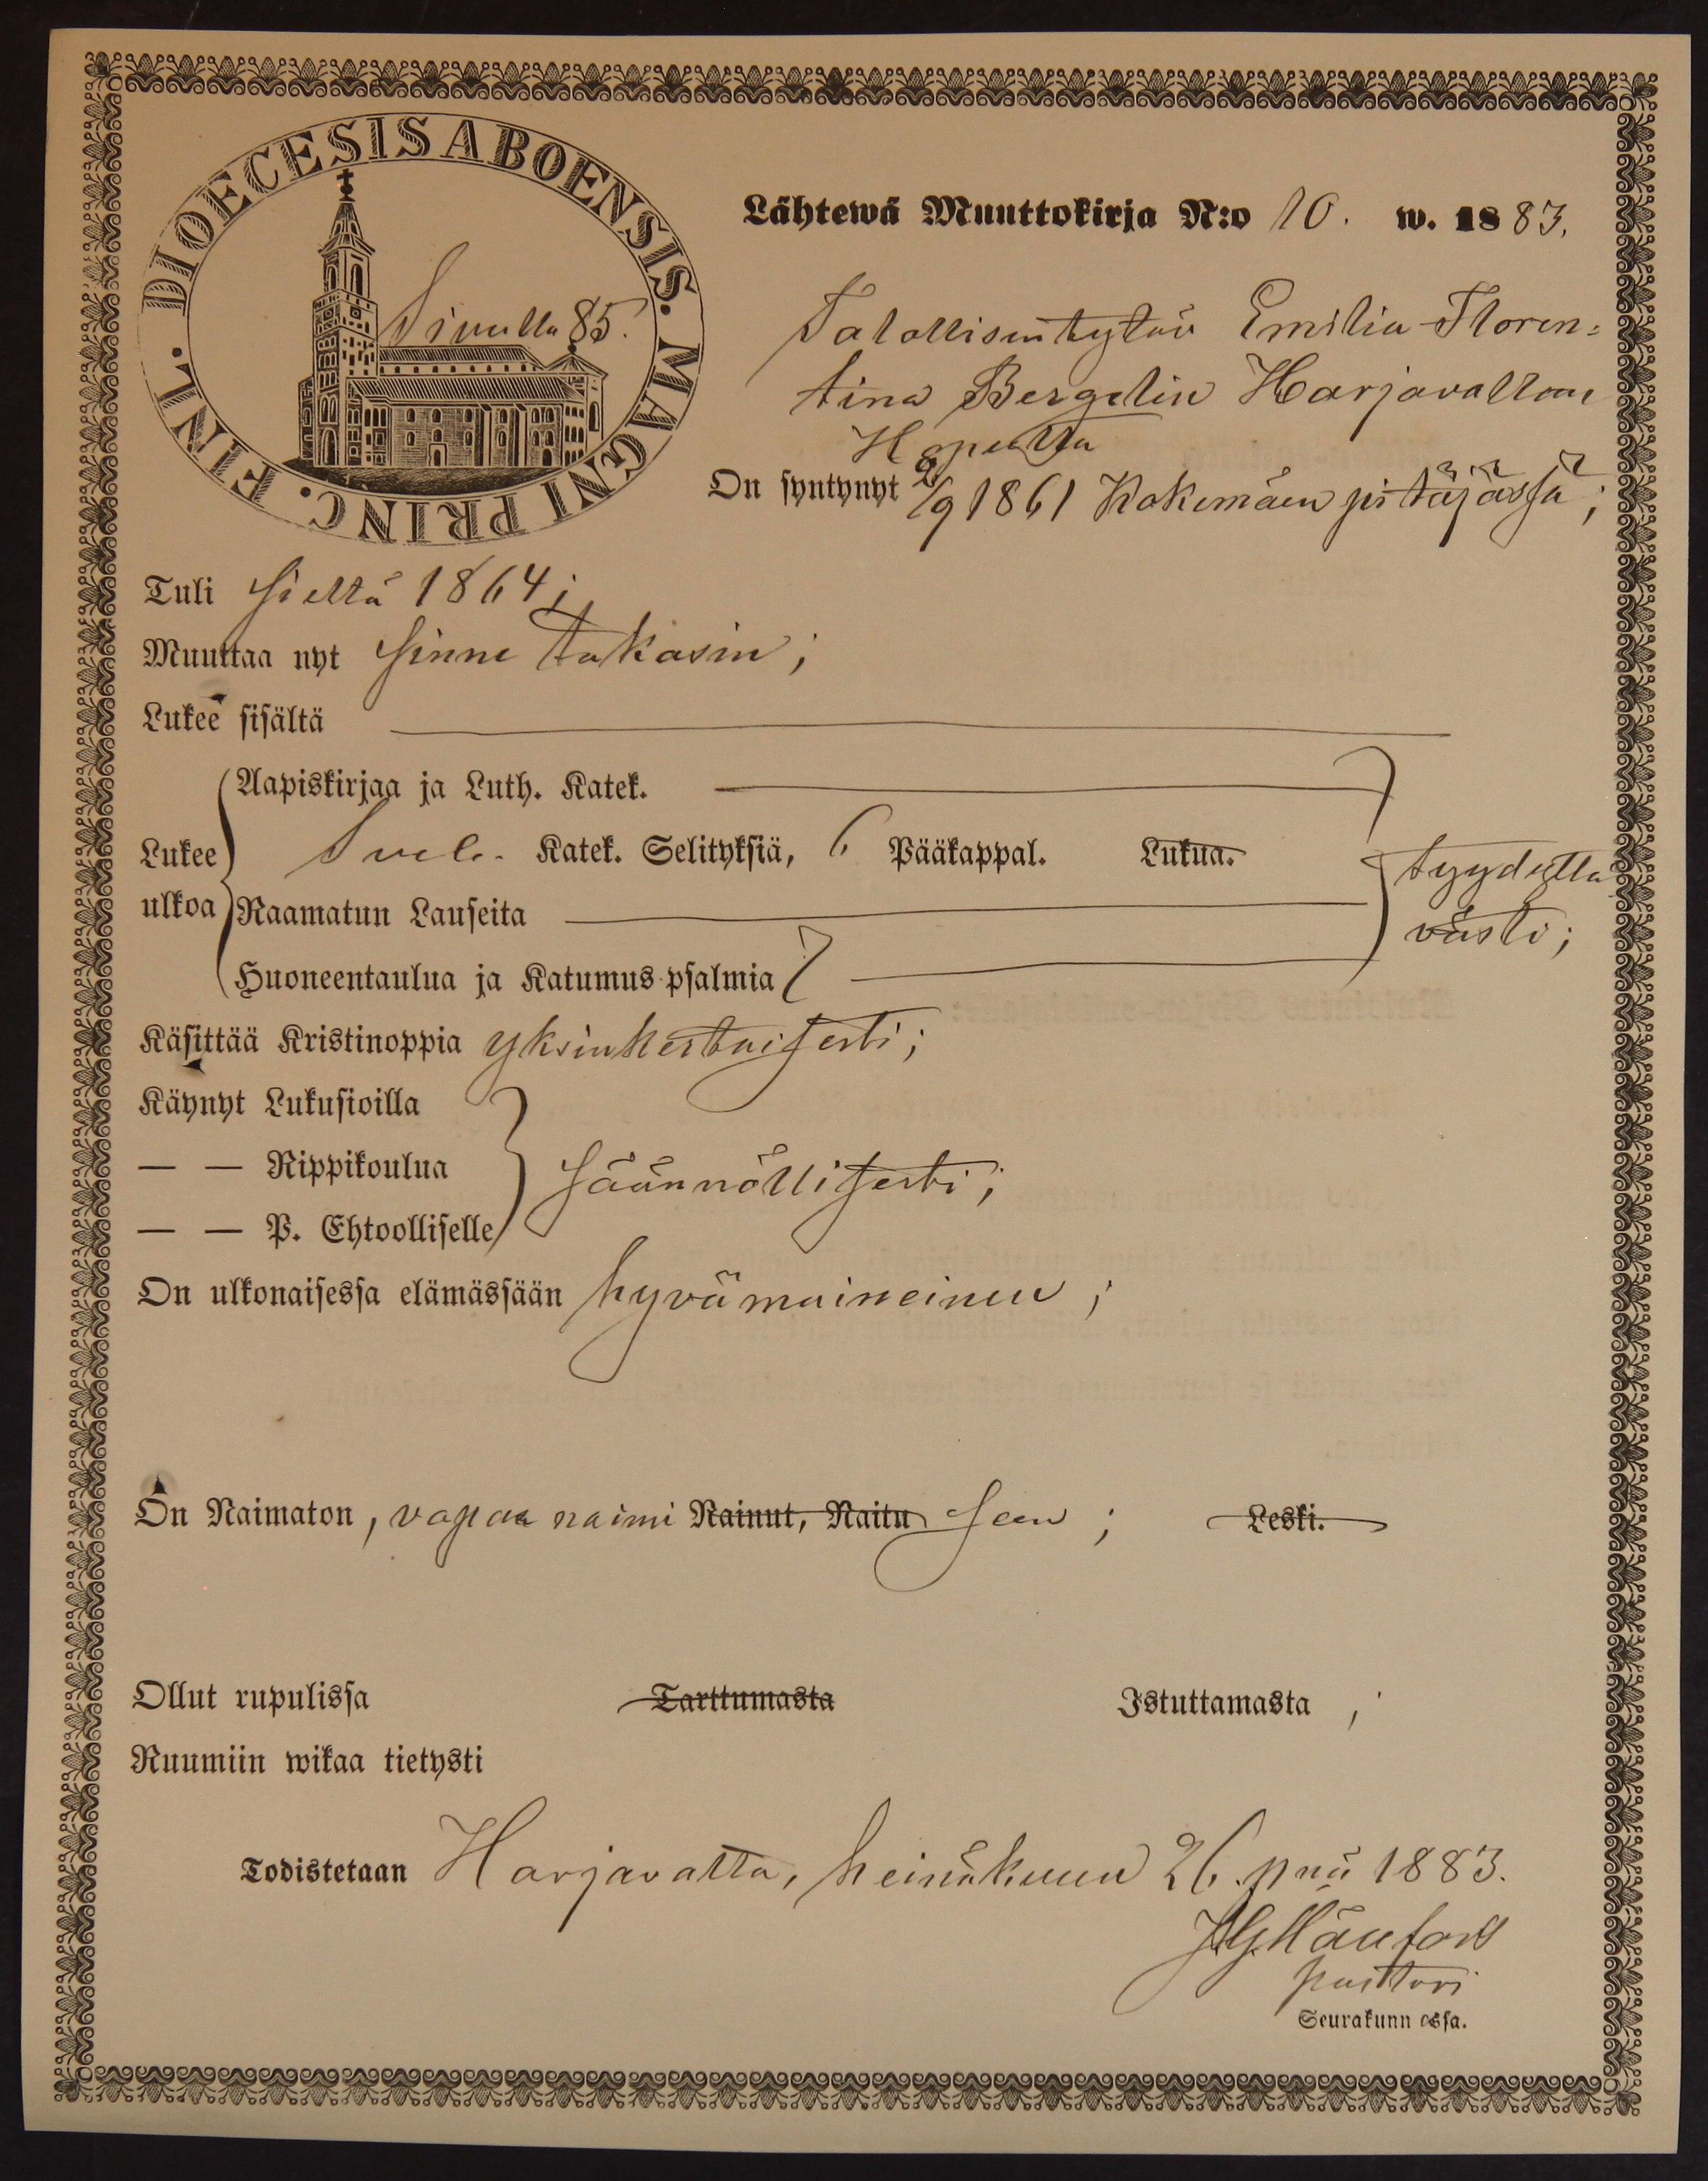 DIOECESIS ABOENSIS. MAGNI PRINC. FINL.
Sivulla 85.
Lähtewä Muuttokirja N:o 10. w. 1883.
Talollisentytär Emilia Floren=
tina Bergelin Harjavallan
H
On syntynyt /9 1861 Kokemäen pitäjässä;
Tuli sieltä 1864;
Muuttaa nyt sinne takasin;
Lukee sisältä
Aapiskirjaa ja Luth. Katek.
Lukee ulkoa Sveb. Katek. Selityksiä, 6 Pääkappal. Lukua. tyydyttä
Raamatun Lauseita västi;
Huoneentaulua ja Katumus psalmia
Käsittää Kristinoppia yksinkertaisesti;
Käynyt Lukusioilla
— — Rippikoulua säännöllisesti;
— — P. Ehtoolliselle
On ulkonaisessa elämässään hyvämaineinen;
On Naimaton, vapaa naimi Nainut, Naitu seen; Leski.
Ollut rupulissa Tarttumasta Istuttamasta;
Ruumiin wikaa tietysti
Todistetaan Harjavalta, heinäkuun 26. pnä 1883.
pastori
Seurakunn assa.